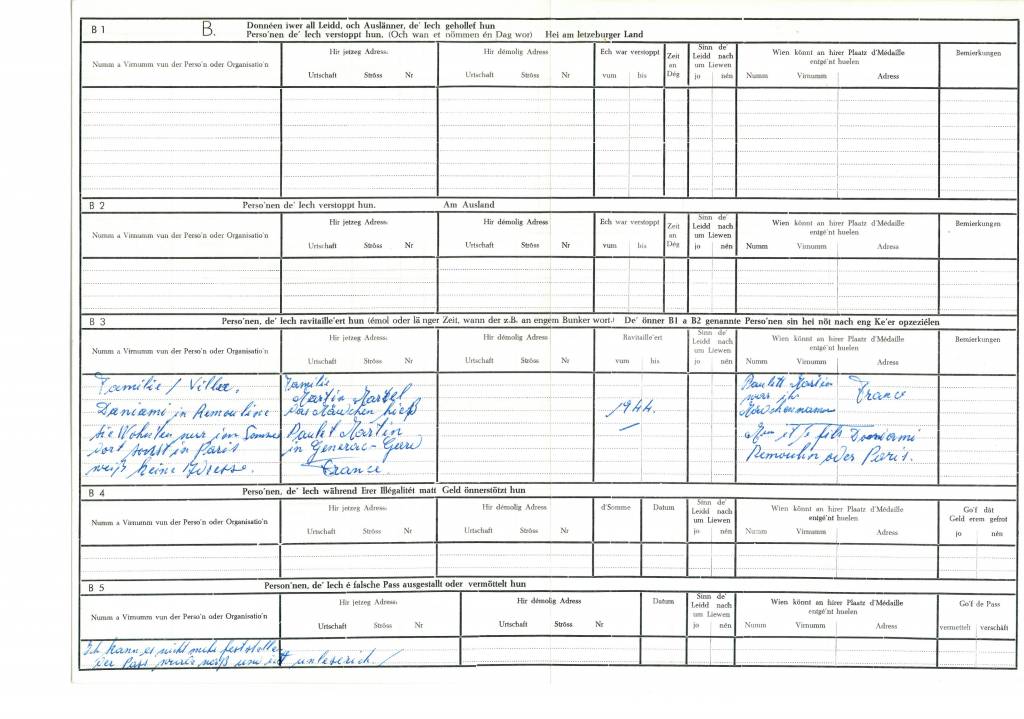 B 1
B.
Donnéen iwer all Leidd, och Auslänner, de' Iech gehollef hun
Perso'nen de' Iech verstoppt hun. (Och wan et nömmen én Dag wor) Hei am letzeburger Land
Numm a Virnumm vun der Perso'n oder Organisatio'n
Hir jetzeg Adress:
Urtschaft Ströss Nr
Hir démolig Adress:
Urtschaft Ströss Nr
Ech war verstoppt
vum bis
Zeit an Dég
Sinn de' Leidd nach um Liewen
jo nén
Wien könnt an hirer Plaatz d'Médaille entgé'nt huelen
Numm Virnumm Adress
Bemierkungen
B 2
Perso'nen de' Iech verstoppt hun. Am Ausland
Numm a Virnumm vun der Perso'n oder Organisatio'n
Hir jetzeg Adress:
Urtschaft Ströss Nr
Hir démolig Adress
Urtschaft Ströss Nr
Ech war verstoppt
vum bis
Zeit an Dég
Sinn de' Leidd nach um Liewen
jo nén
Wien könnt an hirer Plaatz d'Médaille entgé'nt huelen
Numm Virnumm Adress
Bemierkungen
B 3
Perso'nen, de' Iech ravitaille'ert hun (émol oder lä nger Zeit, wann der z.B. an engem Bunker wort.) De' önner B1 a B2 genannte Perso'nen sin hei nöt nach eng Ke'er opzezielen
Numm a Virnumm vun der Perso'n oder Organisatio'n
Hir jetzeg Adress:
Urtschaft Ströss Nr
Hir démolig Adress
Urtschaft Ströss Nr
Ravitaille'ert
vum bis
Sinn de' Leidd nach um Liewen
jo nén
Wien könnt an hirer Plaatz d'Médaille entgé'nt huelen
Numm Virnumm Adress
Bemierkungen
Familie / Villa.
Daniami in Remouline
die Wohnten nur im Somme
dort sonst in Paris
weiß keine Adresse.
Familie
Martin Markel
das Mädchen hieß
Paulet Martin
in Generac-Gare
France.
1944.
Paulett Martin
war ih
France
Mädchenname
ist Daniami
Remoulin oder Paris.
B 4
Perso'nen, de' Iech während Erer Illégalitét matt Geld önnerstötzt hun
Numm a Virnumm vun der Perso'n oder Organisatio'n
Hir jetzeg Adress:
Urtschaft Ströss Nr
Hir démolig Adress:
Urtschaft Ströss Nr
d'Somme
Datum
Sinn de' Leidd nach um Liewen
jo nén
Wien könnt an hirer Plaatz d'Médaille entgé'nt huelen
Numm Virnumm Adress
Go'f dât Geld erem gefrot
jo nén
B 5
Person'nen, de' Iech é falsche Pass ausgestallt oder vermöttelt hun
Numm a Virnumm vun der Perso'n oder Organisatio'n
Hir jetzeg Adress:
Urtschaft Ströss Nr
Hir démolig Adress
Urtschaft Ströss Nr
Datum
Sinn de' Leidd nach um Liewen
jo nén
Wien könnt an hirer Plaatz d'Médaille entgé'nt huelen
Numm Virnumm Adress
Go'f de Pass
vermettelt verschäft
Ich kann es nicht mehr feststellen
der Pass wurde naß und ist unleserich.